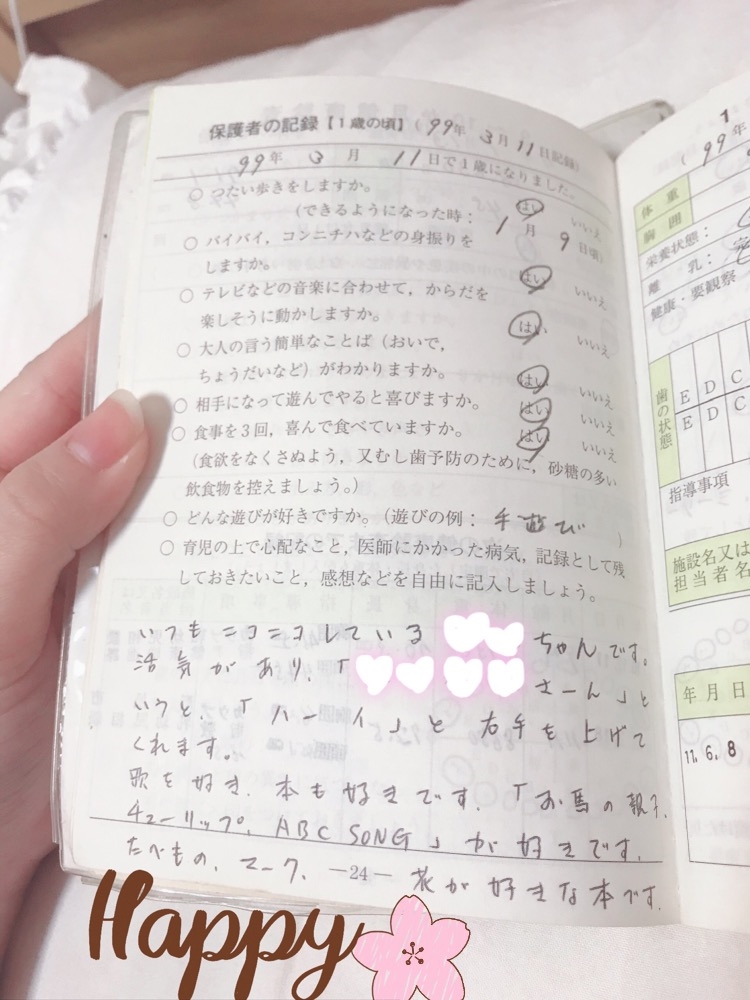 保護者の記録【1歳の頃】(99年3月11日記録)
99年3月11日で1歳になりました。
○ つたい歩きをしますか。 はい いいえ
(できるようになった時:1月9日頃)
○ バイバイ,コンニチハなどの身振りを
しますか。 はい いいえ
○ テレビなどの音楽に合わせて,からだを
楽しそうに動かしますか。 はい いいえ
○ 大人の言う簡単なことば(おいで,
ちょうだいなど)がわかりますか。 はい いいえ
○ 相手になって遊んでやると喜びますか。 はい いいえ
○ 食事を3回,喜んで食べていますか。 はい いいえ
(食欲をなくさぬよう,又むし歯予防のために,砂糖の多い
飲食物を控えましょう。)
○ どんな遊びが好きですか。(遊びの例:手遊び)
○ 育児の上で心配なこと,医師にかかった病気,記録として残
しておきたいこと,感想などを自由に記入しましょう。
いつもニコニコしている ちゃんです。
活気があり、「 さーん」と
いうと、「ハーイ」と右手を上げて
くれます。
歌も好き、本も好きです。「お馬の親子、
チューリップ、ABC SONG」が好きです。
たべもの、マーク、花が好きな本です。
—24—
Happy
1
(99年
体重
胸囲
栄養状態:
離乳:完
健康・要観察
歯の状態
E D C
E D C
指導事項
施設名又は
担当者名
年月日
11,6,8